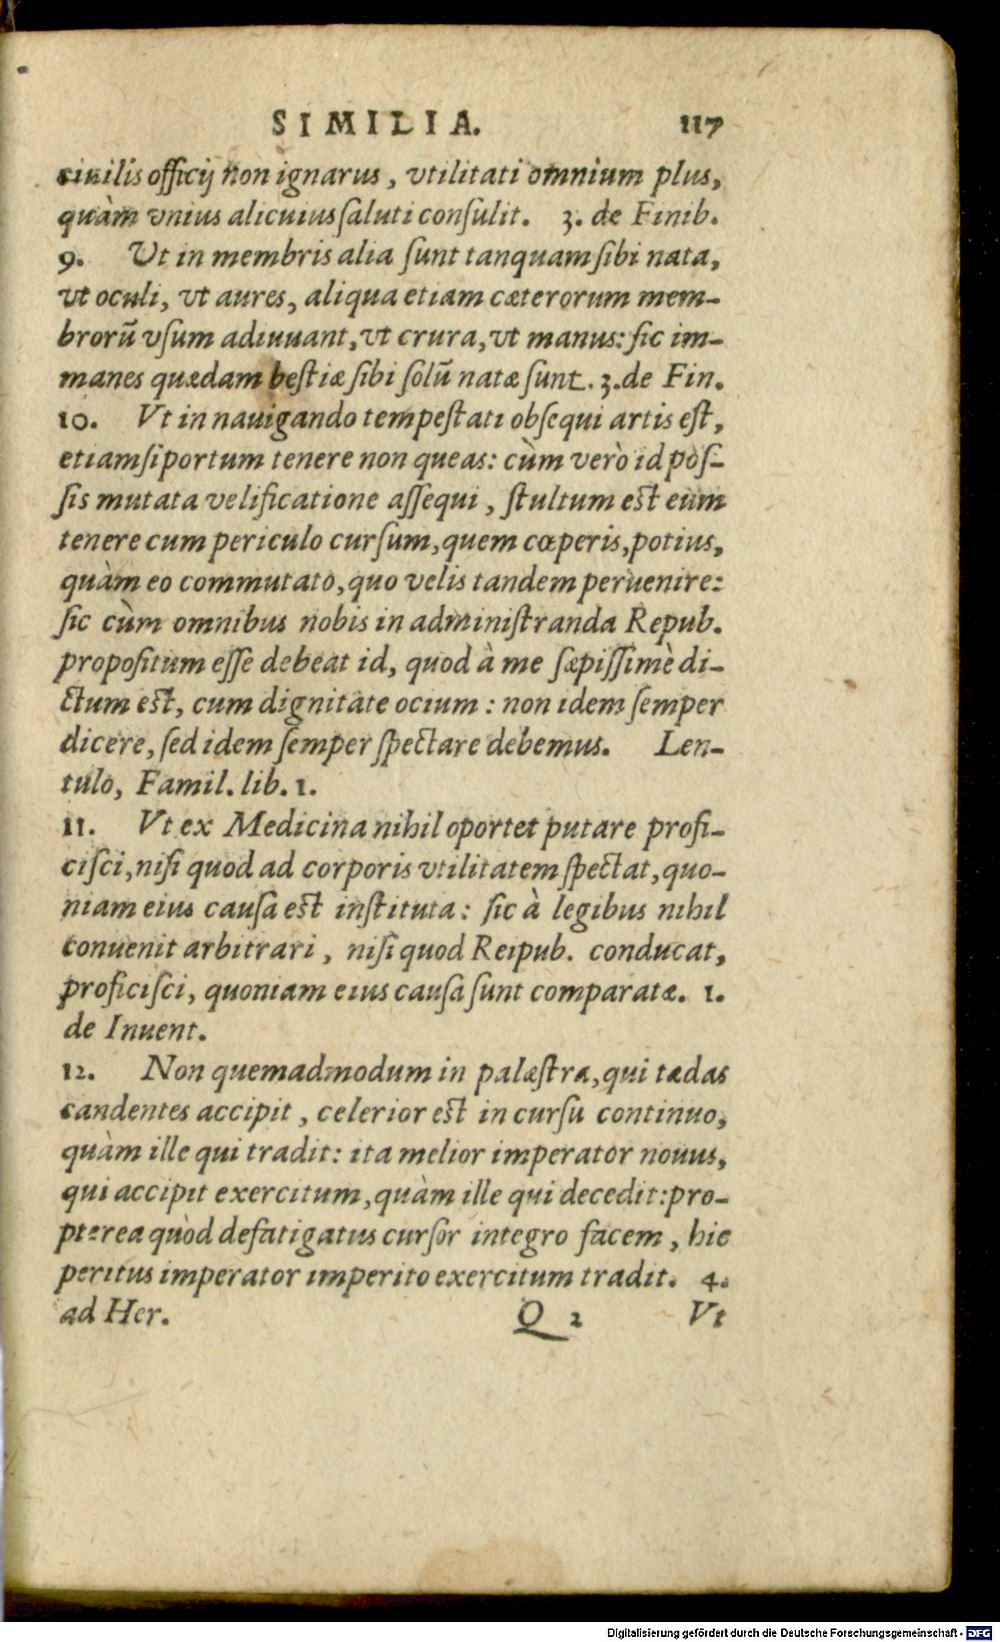 SIMILIA. 117
ciuilis officij non ignarus, vtilitati omnium plus,
quàm vnius alicuius ſaluti conſulit. 3. de Finib.
9. Ut in membris alia ſunt tanquam ſibi nata,
vt oculi, vt aures, aliqua etiam cæterorum mem-
brorũ vſum adiuuant, vt crura, vt manus: ſic im-
manes quædam beſtiæ ſibi ſolũ natæ ſunt. 3. de Fin.
10. Vt in nauigando tempeſtati obſequi artis eſt,
etiamſi portum tenere non queas: cùm verò id poſ-
ſis mutata velificatione aſſequi, ſtultum eſt eum
tenere cum periculo curſum, quem cœperis, potius,
quàm eo commutato, quo velis tandem peruenire:
ſic cùm omnibus nobis in adminiſtranda Repub.
propoſitum eſſe debeat id, quod à me ſæpiſſimè di-
ctum eſt, cum dignitate ocium: non idem ſemper
dicere, ſed idem ſemper ſpectare debemus. Len-
tulo, Famil. lib. 1.
11. Vt ex Medicina nihil oportet putare profi-
ciſci, niſi quod ad corporis vtilitatem ſpectat, quo-
niam eius cauſa eſt inſtituta: ſic à legibus nihil
conuenit arbitrari, niſi quod Reipub. conducat,
proficiſci, quoniam eius cauſa ſunt comparatæ. 1.
de Inuent.
12. Non quemadmodum in palæſtra, qui tædas
candentes accipit, celerior eſt in curſu continuo,
quàm ille qui tradit: ita melior imperator nouus,
qui accipit exercitum, quàm ille qui decedit: pro-
pterea quòd defatigatus curſor integro facem, hic
peritus imperator imperito exercitum tradit. 4.
ad Her. Q 2 Vt
Digitalisierung gefördert durch die Deutsche Forschungsgemeinschaft - DFG